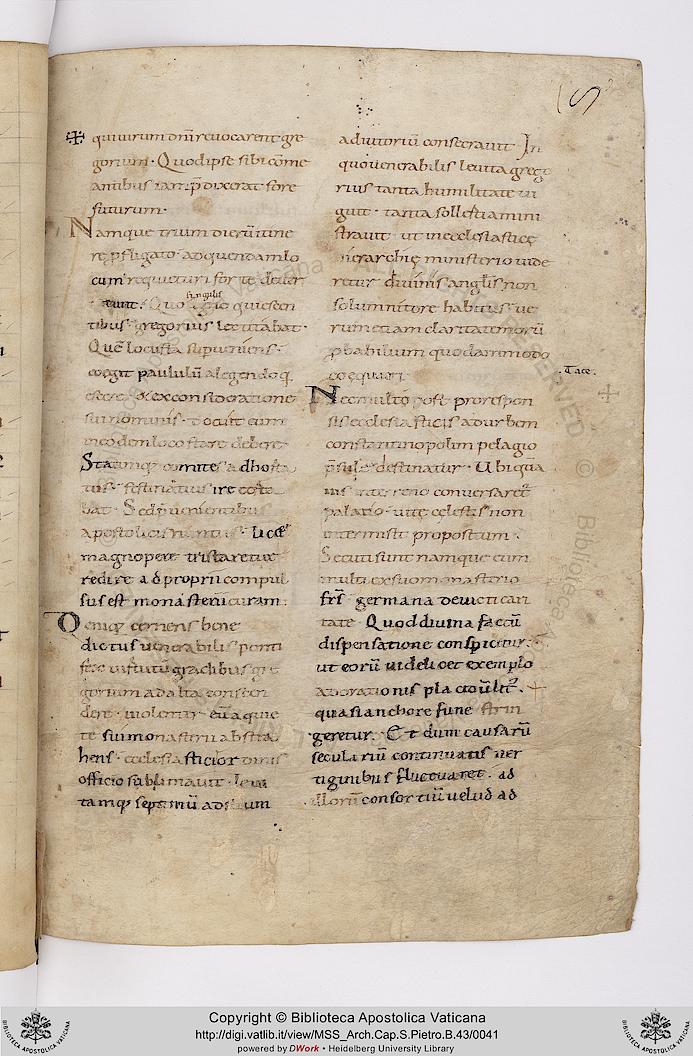 qui uirum dnī reuocarent gre
gorium. Quod ipse sibi com̄e
antibus iam p̄dixerat fore
futurum.
Namque trium dierū itine
re
cum requieturi forte deuer
singulis
quiescen
tibus. gregorius lectitabat.
Quē locusta superueniens.
coegit paululū a legendo q
escere. & ex consideratione
sui nominis. docuit eum
in eodem loco stare debere.
Statimq; comites adhorta
tus. festinantius ire
bat. Sed
apostolicis nuntiis. lic&
magnopere tristaretur
redire ad proprii compul
sus est monasterii curam.
Deniq; cernens bene
dictus uenerabilis ponti
fex uirtutū gradibus gre
gorium ad alta conscen
dere. uiolenter eū a quie
te sui monasterii abstra
hens. ecclesiastici ordinis
officio sublimauit. leui
tamq; septimū ad suum
adiutoriū consecrauit. In
quo uenerabilis leuita grego
rius tanta humilitate ui
guit. tanta sollertia mini
strauit. ut in ecclesiasticę
hierarchię ministerio uide
retur diuinis anglis non
solum nitore habitus. ue
rum etiam claritate morū
p̱babilium quodammodo
coęquari.
. Tace.
Nec multo post pro respon
sis ecclesiasticis ad urbem
constantinopolim pelagio
p̄sule destinatur. Ubi quā
uis in terreno conuersar&
palatio. uitę cęlestis non
intermisit propositum.
Secuti sunt namque eum
multi ex suo monasterio
frs̄ germana deuicti cari
tate. Quod diuina factū
dispensatione conspicitur.
ut eorū uidelicet exemplo
ad orationis placidū lit.
quasi anchore fune strin
geretur. Et dum causarū
seculariū continuatis uer
tiginibus fluctuaret. ad
illorū consortiū uelud ad
Copyright © Biblioteca Apostolica Vaticana
http://digi.vatlib.it/view/MSS_Arch.Cap.S.Pietro.B.43/0041
powered by DWork • Heidelberg University Library